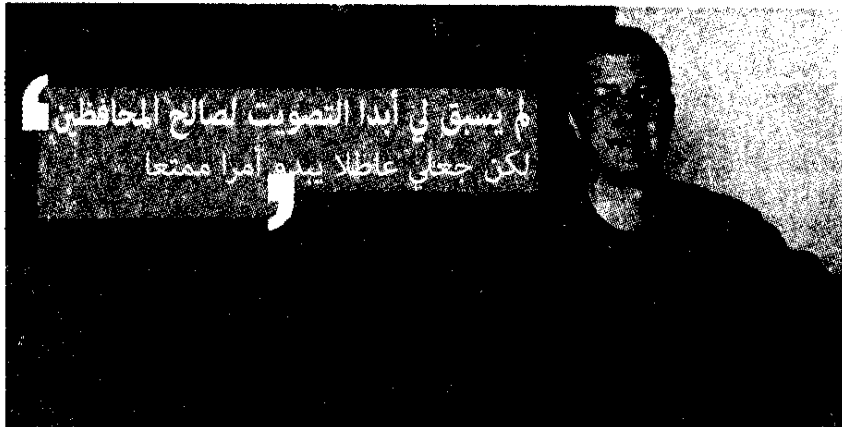 لم يسبق لي أبدا التصويت لصالح المحافظين
لكن جعلي عاطلا يبدو أمرا ممتعا